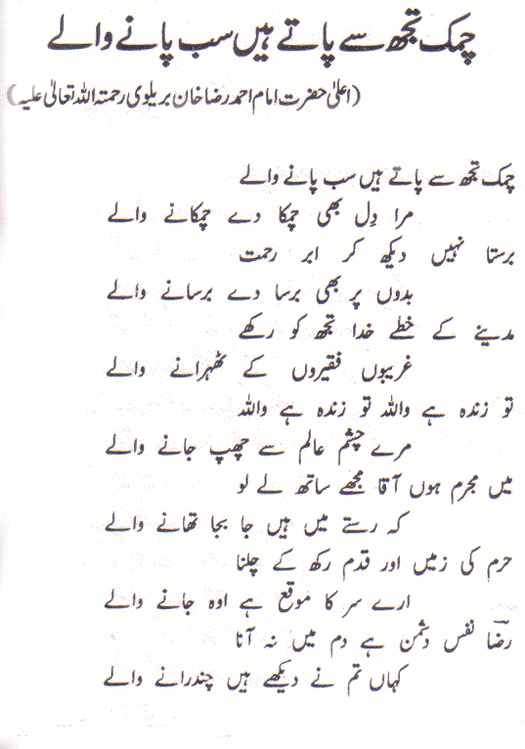 چمک تجھ سے پاتے ہیں سب پانے والے
(اعلیٰ حضرت امام احمد رضا خان بریلوی رحمتہ اللہ تعالیٰ علیہ)
چمک تجھ سے پاتے ہیں سب پانے والے
مرا دِل بھی چمکا دے چمکانے والے
برستا نہیں دیکھ کر ابر رحمت
بدوں پر بھی برسا دے برسانے والے
مدینے کے خطے خدا تجھ کو رکھے
غریبوں فقیروں کے ٹھہرانے والے
تو زندہ ہے واللہ تو زندہ ہے واللہ
مرے چشم عالم سے چھپ جانے والے
میں مجرم ہوں آقا مجھے ساتھ لے لو
کہ رستے میں ہیں جا بجا تھانے والے
حرم کی زمیں اور قدم رکھ کے چلنا
ارے سر کا موقع ہے اوہ جانے والے
رضا نفس دشمن ہے دم میں نہ آنا
کہاں تم نے دیکھے ہیں چندرانے والے